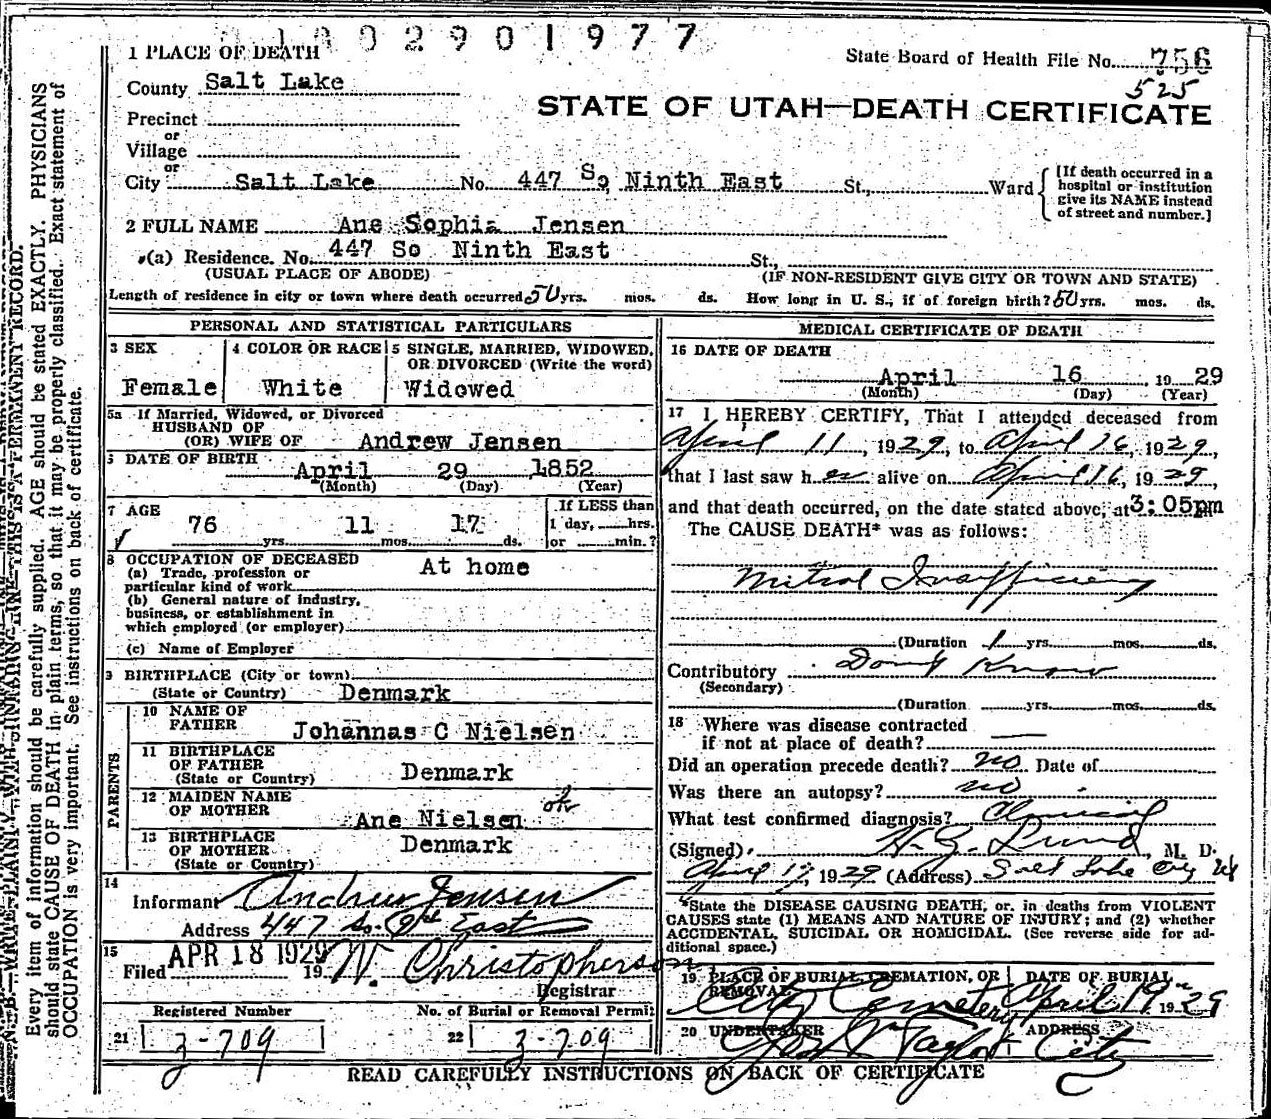 0 2 9 0 1 9 7 7
1 PLACE OF DEATH
State Board of Health File No. 756
525
County Salt Lake
STATE OF UTAH—DEATH CERTIFICATE
Precinct
or
Village
or
City Salt Lake No. 447 So Ninth East St., Ward
[If death occurred in a
hospital or institution
give its NAME instead
of street and number.]
2 FULL NAME Ane Sophia Jensen
(a) Residence. No. 447 So Ninth East St.,
(USUAL PLACE OF ABODE) (IF NON-RESIDENT GIVE CITY OR TOWN AND STATE)
Length of residence in city or town where death occurred 50 yrs. mos. ds. How long in U. S., if of foreign birth? 50 yrs. mos. ds.
PERSONAL AND STATISTICAL PARTICULARS
3 SEX 4 COLOR OR RACE 5 SINGLE, MARRIED, WIDOWED,
OR DIVORCED (Write the word)
Female White Widowed
5a If Married, Widowed, or Divorced
HUSBAND OF
(OR) WIFE OF Andrew Jensen
6 DATE OF BIRTH
April 29 1852
(Month) (Day) (Year)
7 AGE
76 yrs. 11 mos. 17 ds.
If LESS than
1 day, hrs.
or min.?
8 OCCUPATION OF DECEASED
(a) Trade, profession or
particular kind of work At home
(b) General nature of industry,
business, or establishment in
which employed (or employer)
(c) Name of Employer
9 BIRTHPLACE (City or town)
(State or Country) Denmark
PARENTS
10 NAME OF
FATHER Johannas C Nielsen
11 BIRTHPLACE
OF FATHER
(State or Country) Denmark
12 MAIDEN NAME
OF MOTHER Ane Nielsen ok
13 BIRTHPLACE
OF MOTHER
(State or Country) Denmark
14
Informant Andrew Jensen
Address 447 So. 9th East
15
Filed APR 18 1929 19 W. Christopherson
Registrar
Registered Number No. of Burial or Removal Permit
21 3-709 22 3-709
MEDICAL CERTIFICATE OF DEATH
16 DATE OF DEATH
April 16, 1929
(Month) (Day) (Year)
17 I HEREBY CERTIFY, That I attended deceased from
April 11, 1929, to April 16, 1929,
that I last saw her alive on April 16, 1929,
and that death occurred, on the date stated above, at 3:05pm
The CAUSE DEATH* was as follows:
Mitral Insufficiency
(Duration 1 yrs. mos. ds.
Contributory Dont Know
(Secondary)
(Duration yrs. mos. ds.
18 Where was disease contracted
if not at place of death?
Did an operation precede death? no Date of
Was there an autopsy? no
What test confirmed diagnosis? Clinical
(Signed) H. G. Lund, M. D.
April 17, 1929 (Address) Salt Lake City Ut
*State the DISEASE CAUSING DEATH, or, in deaths from VIOLENT
CAUSES state (1) MEANS AND NATURE OF INJURY; and (2) whether
ACCIDENTAL, SUICIDAL OR HOMICIDAL. (See reverse side for ad-
ditional space.)
19 PLACE OF BURIAL, CREMATION, OR
REMOVAL DATE OF BURIAL
City Cemetery April 19 1929
20 UNDERTAKER ADDRESS
Taylor City
READ CAREFULLY INSTRUCTIONS ON BACK OF CERTIFICATE
N.B.—WRITE PLAINLY WITH UNFADING INK—THIS IS A PERMANENT RECORD.
Every item of information should be carefully supplied. AGE should be stated EXACTLY. PHYSICIANS
should state CAUSE OF DEATH in plain terms, so that it may be properly classified. Exact statement of
OCCUPATION is very important. See instructions on back of certificate.